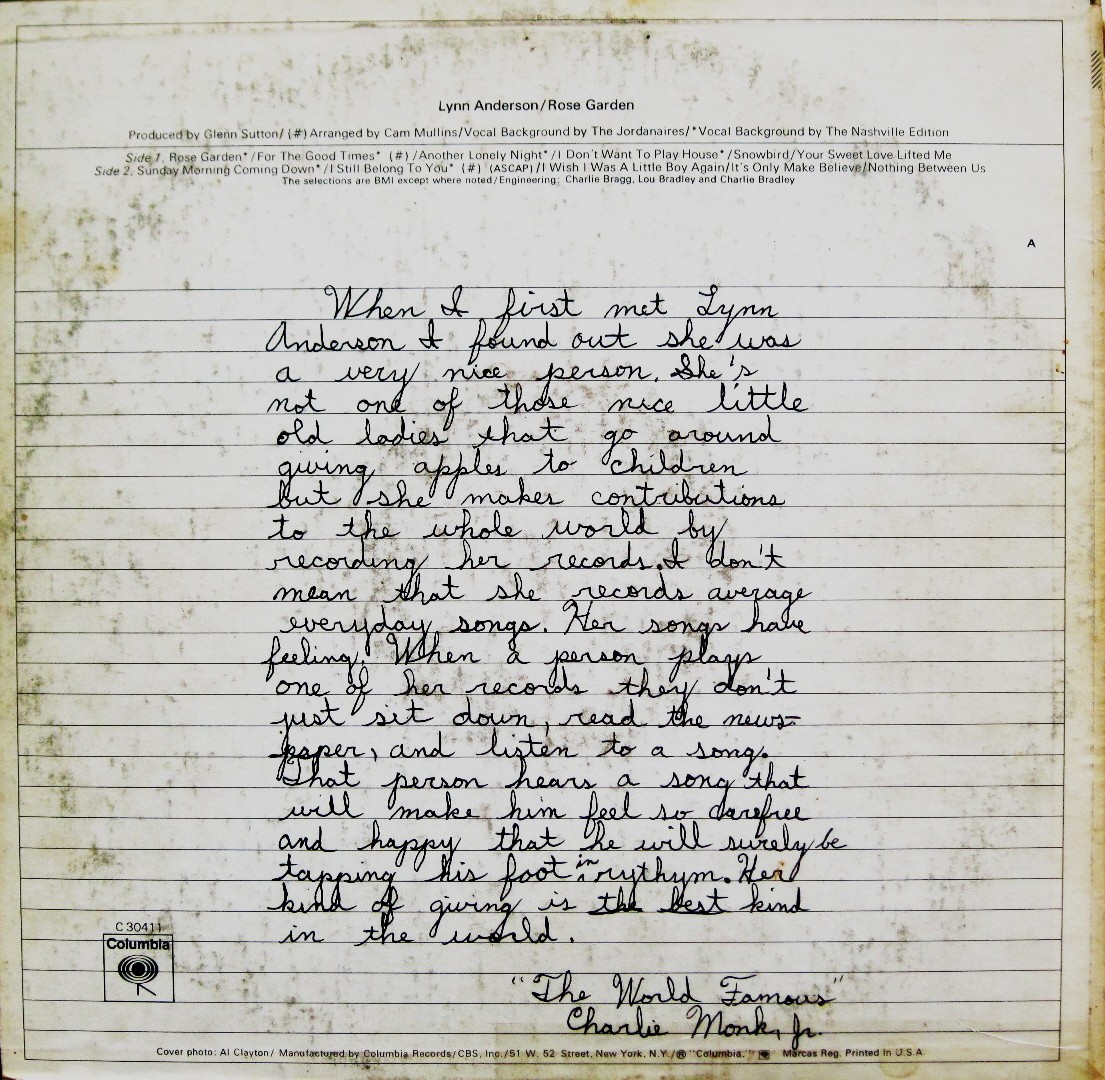 Lynn Anderson/Rose Garden
Produced by Glenn Sutton/ (#) Arranged by Cam Mullins/Vocal Background by The Jordanaires/*Vocal Background by The Nashville Edition
Side 1. Rose Garden*/For The Good Times* (#)/Another Lonely Night*/I Don't Want To Play House*/Snowbird/Your Sweet Love Lifted Me
Side 2. Sunday Morning Coming Down*/I Still Belong To You* (#) (ASCAP)/I Wish I Was A Little Boy Again/It's Only Make Believe/Nothing Between Us
The selections are BMI except where noted/Engineering: Charlie Bragg, Lou Bradley and Charlie Bradley
A
When I first met Lynn
Anderson I found out she was
a very nice person. She's
not one of those nice little
old ladies that go around
giving apples to children
but she makes contributions
to the whole world by
recording her records. I don't
mean that she records average
everyday songs. Her songs have
feeling. When a person plays
one of her records they don't
just sit down, read the news-
paper, and listen to a song.
That person hears a song that
will make him feel so carefree
and happy that he will surely be
tapping his foot in rythym. Her
kind of giving is the best kind
in the world.
"The World Famous"
Charlie Monk, Jr.
C 30411
Columbia
Cover photo: Al Clayton/ Manufactured by Columbia Records/CBS, Inc./51 W. 52 Street, New York, N.Y./® "Columbia," Marcas Reg. Printed in U.S.A.